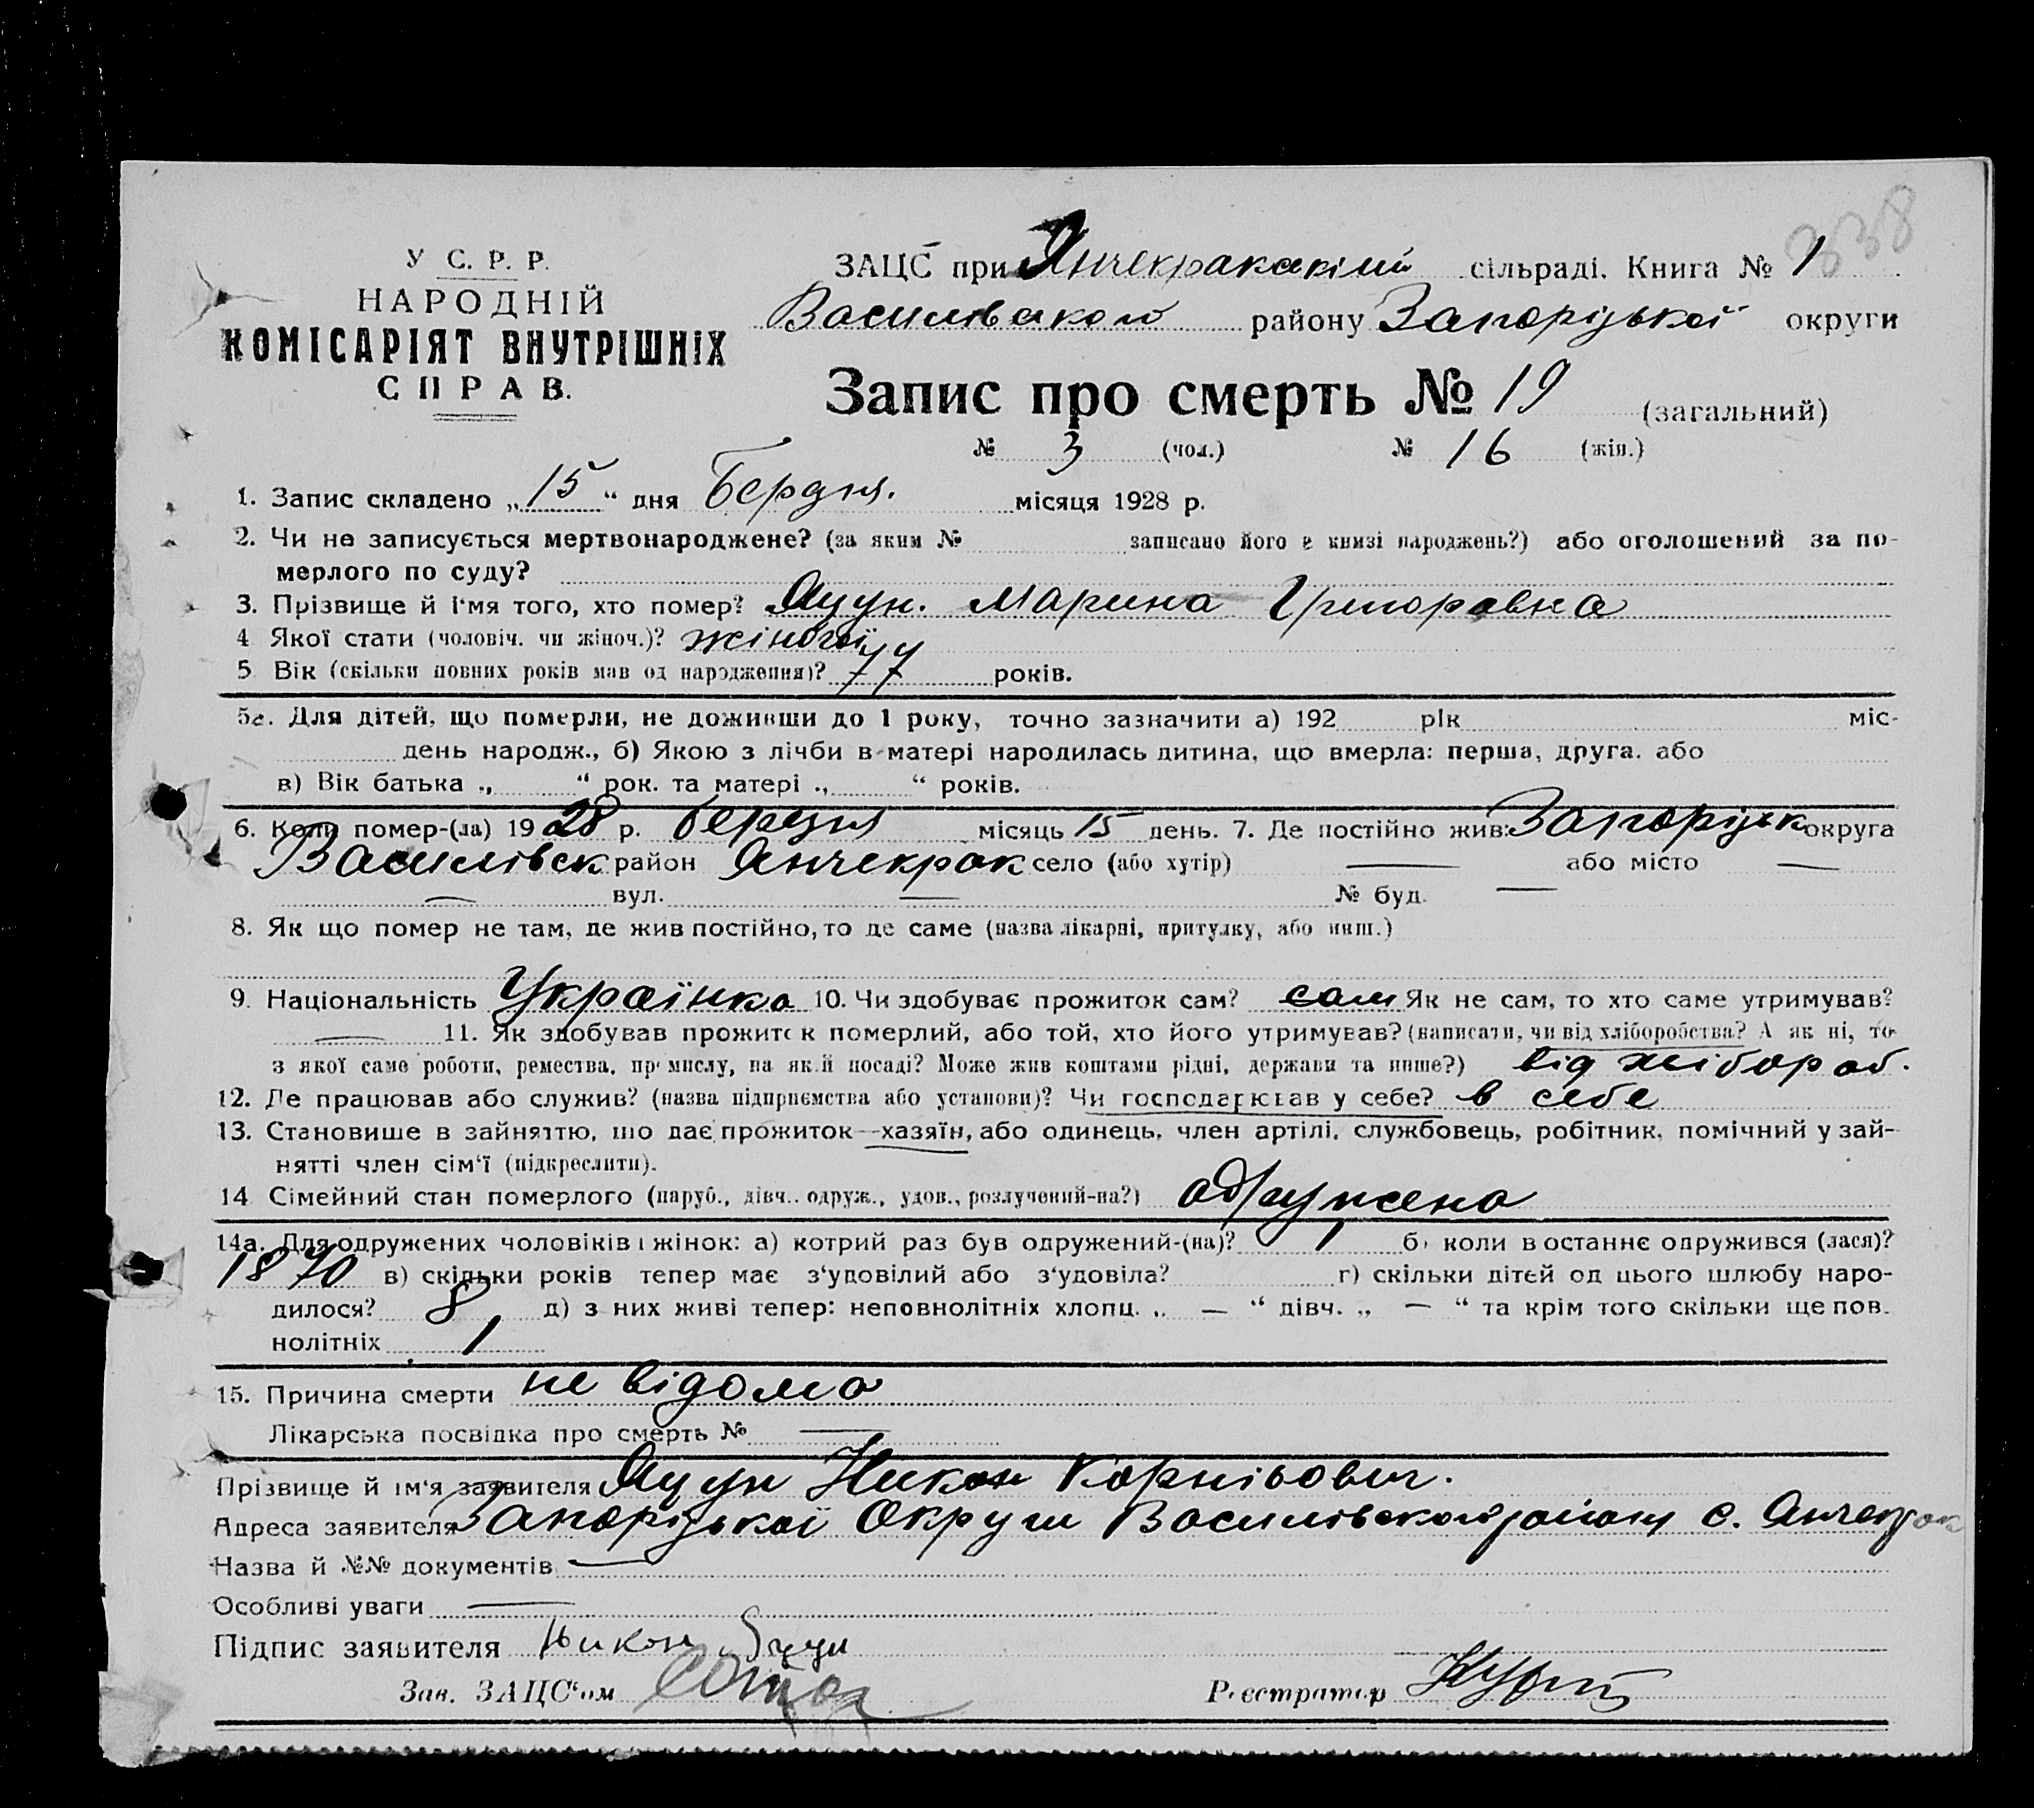 338
У С. Р. Р.
НАРОДНІЙ
КОМІСАРІЯТ ВНУТРІШНІХ
СПРАВ.
ЗАЦС при Янчекракській сільраді. Книга № 1
Василівського району Запоріцької округи
Запис про смерть № 19 (загальний)
№ 3 (чол.) № 16 (жін.)
1. Запис складено „15“ дня Бердня. місяця 1928 р.
2. Чи не записується мертвонароджене? (за яким № записано його в книзі народжень?) або оголошений за по-
мерлого по суду?
3. Прізвище й ім'я того, хто помер? Яцун. Марина Григоровна
4 Якої стати (чоловіч. чи жіноч.)? жіночої
5 Вік (скільки повних років мав од народження)? 77 років.
5а. Для дітей, що померли, не доживши до 1 року, точно зазначити а) 192 рік міс-
день народж., б) Якою з лічби в матері народилась дитина, що вмерла: перша, друга. або
в) Вік батька „ “ рок. та матері „ “ років.
6. Коли помер-(ла) 1928 р. бердня місяць 15 день. 7. Де постійно жив: Запоріцьк округа
Василівськ район Янчекрак село (або хутір) — або місто —
— вул. — № буд. —
8. Як що помер не там, де жив постійно, то де саме (назва лікарні, притулку, або инш.)
9. Національність Українка 10. Чи здобуває прожиток сам? сам Як не сам, то хто саме утримував?
— 11. Як здобував прожиток померлий, або той, хто його утримував? (написати, чи від хліборобства? А як ні, то
з якої саме роботи, ремества, промислу, на якій посаді? Може жив коштами рідні, держави та инше?) від хлібороб.
12. Де працював або служив? (назва підприємства або установи)? Чи господарював у себе? в себе
13. Становище в зайняттю, що дає прожиток—хазяїн, або одинець, член артілі, службовець, робітник, помічний у зай-
нятті член сім'ї (підкреслити).
14 Сімейний стан померлого (паруб., дівч., одруж., удов., розлучений-на?) одружена
14а. Для одружених чоловіків і жінок: а) котрий раз був одружений-(на)? 1 б) коли в останнє одружився (лася)?
1870 в) скільки років тепер має з'удовілий або з'удовіла? г) скільки дітей од цього шлюбу наро-
дилося? 8 д) з них живі тепер: неповнолітніх хлопц. „ — “ дівч. „ — “ та крім того скільки ще пов.
нолітніх 1
15. Причина смерти не відома
Лікарська посвідка про смерть № —
Прізвище й ім'я заявителя Яцун Никон Корнійович.
Адреса заявителя Запоріцької Округи Василівського району с. Янчекрак
Назва й №№ документів —
Особливі уваги —
Підпис заявителя Никон Яцун
Зав. ЗАЦС'ом
Реєстратор